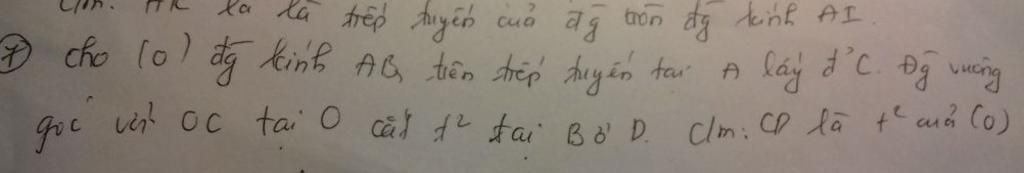 C/m: AK là là tiếp tuyến của đg tròn đg kính AI.
⑦ Cho (O) đg kính AB, trên tiếp tuyến tại A lấy đ' C. Đg vuông
góc với OC tại O cắt t² tại B ở D. C/m: CD là t² của (O)